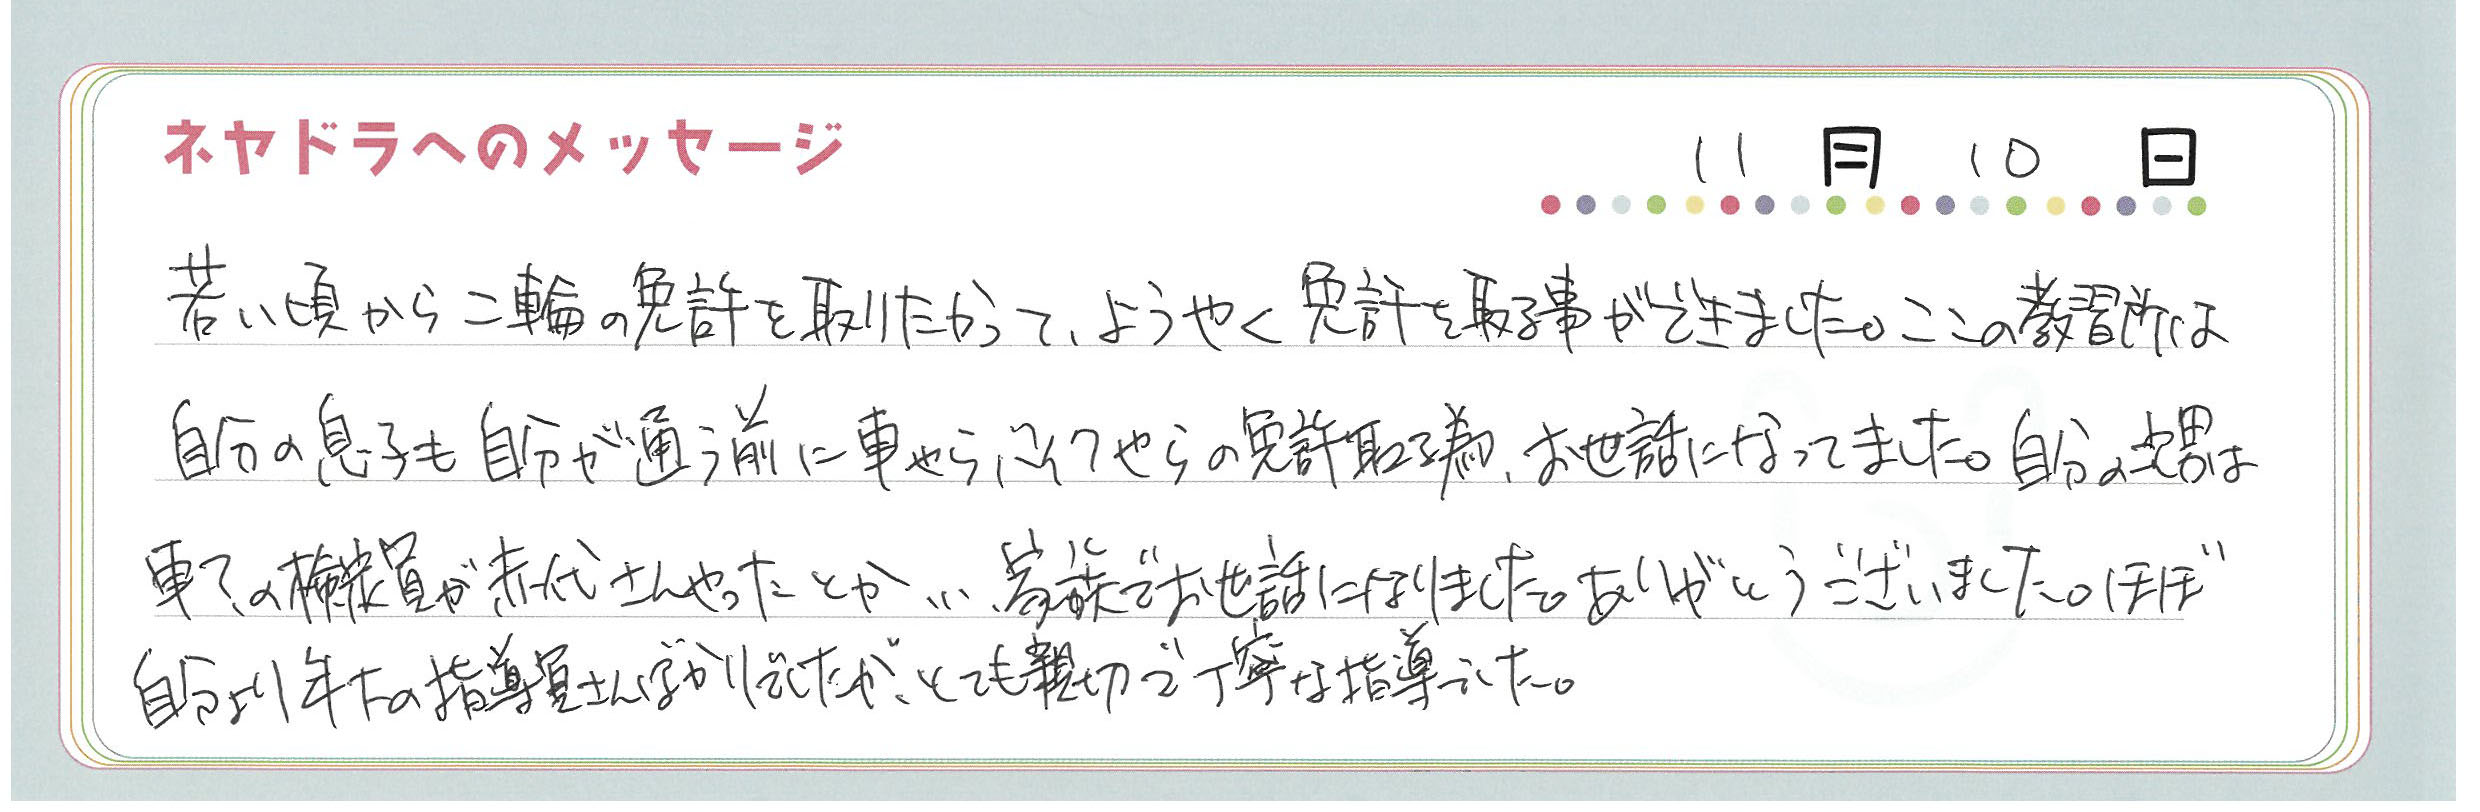 ネヤドラへのメッセージ
11月10日
若い頃から二輪の免許を取りたかって、ようやく免許を取る事ができました。ここの教習所は
自分の息子も自分が通う前に車やら、バイクやらの免許取る為、お世話になってました。自分の長男は
車での検定員が赤代さんやったとか…、家族でお世話になりました。ありがとうございました。ほぼ
自分より年下の指導員さんばかりでしたが、とても親切で丁寧な指導でした。